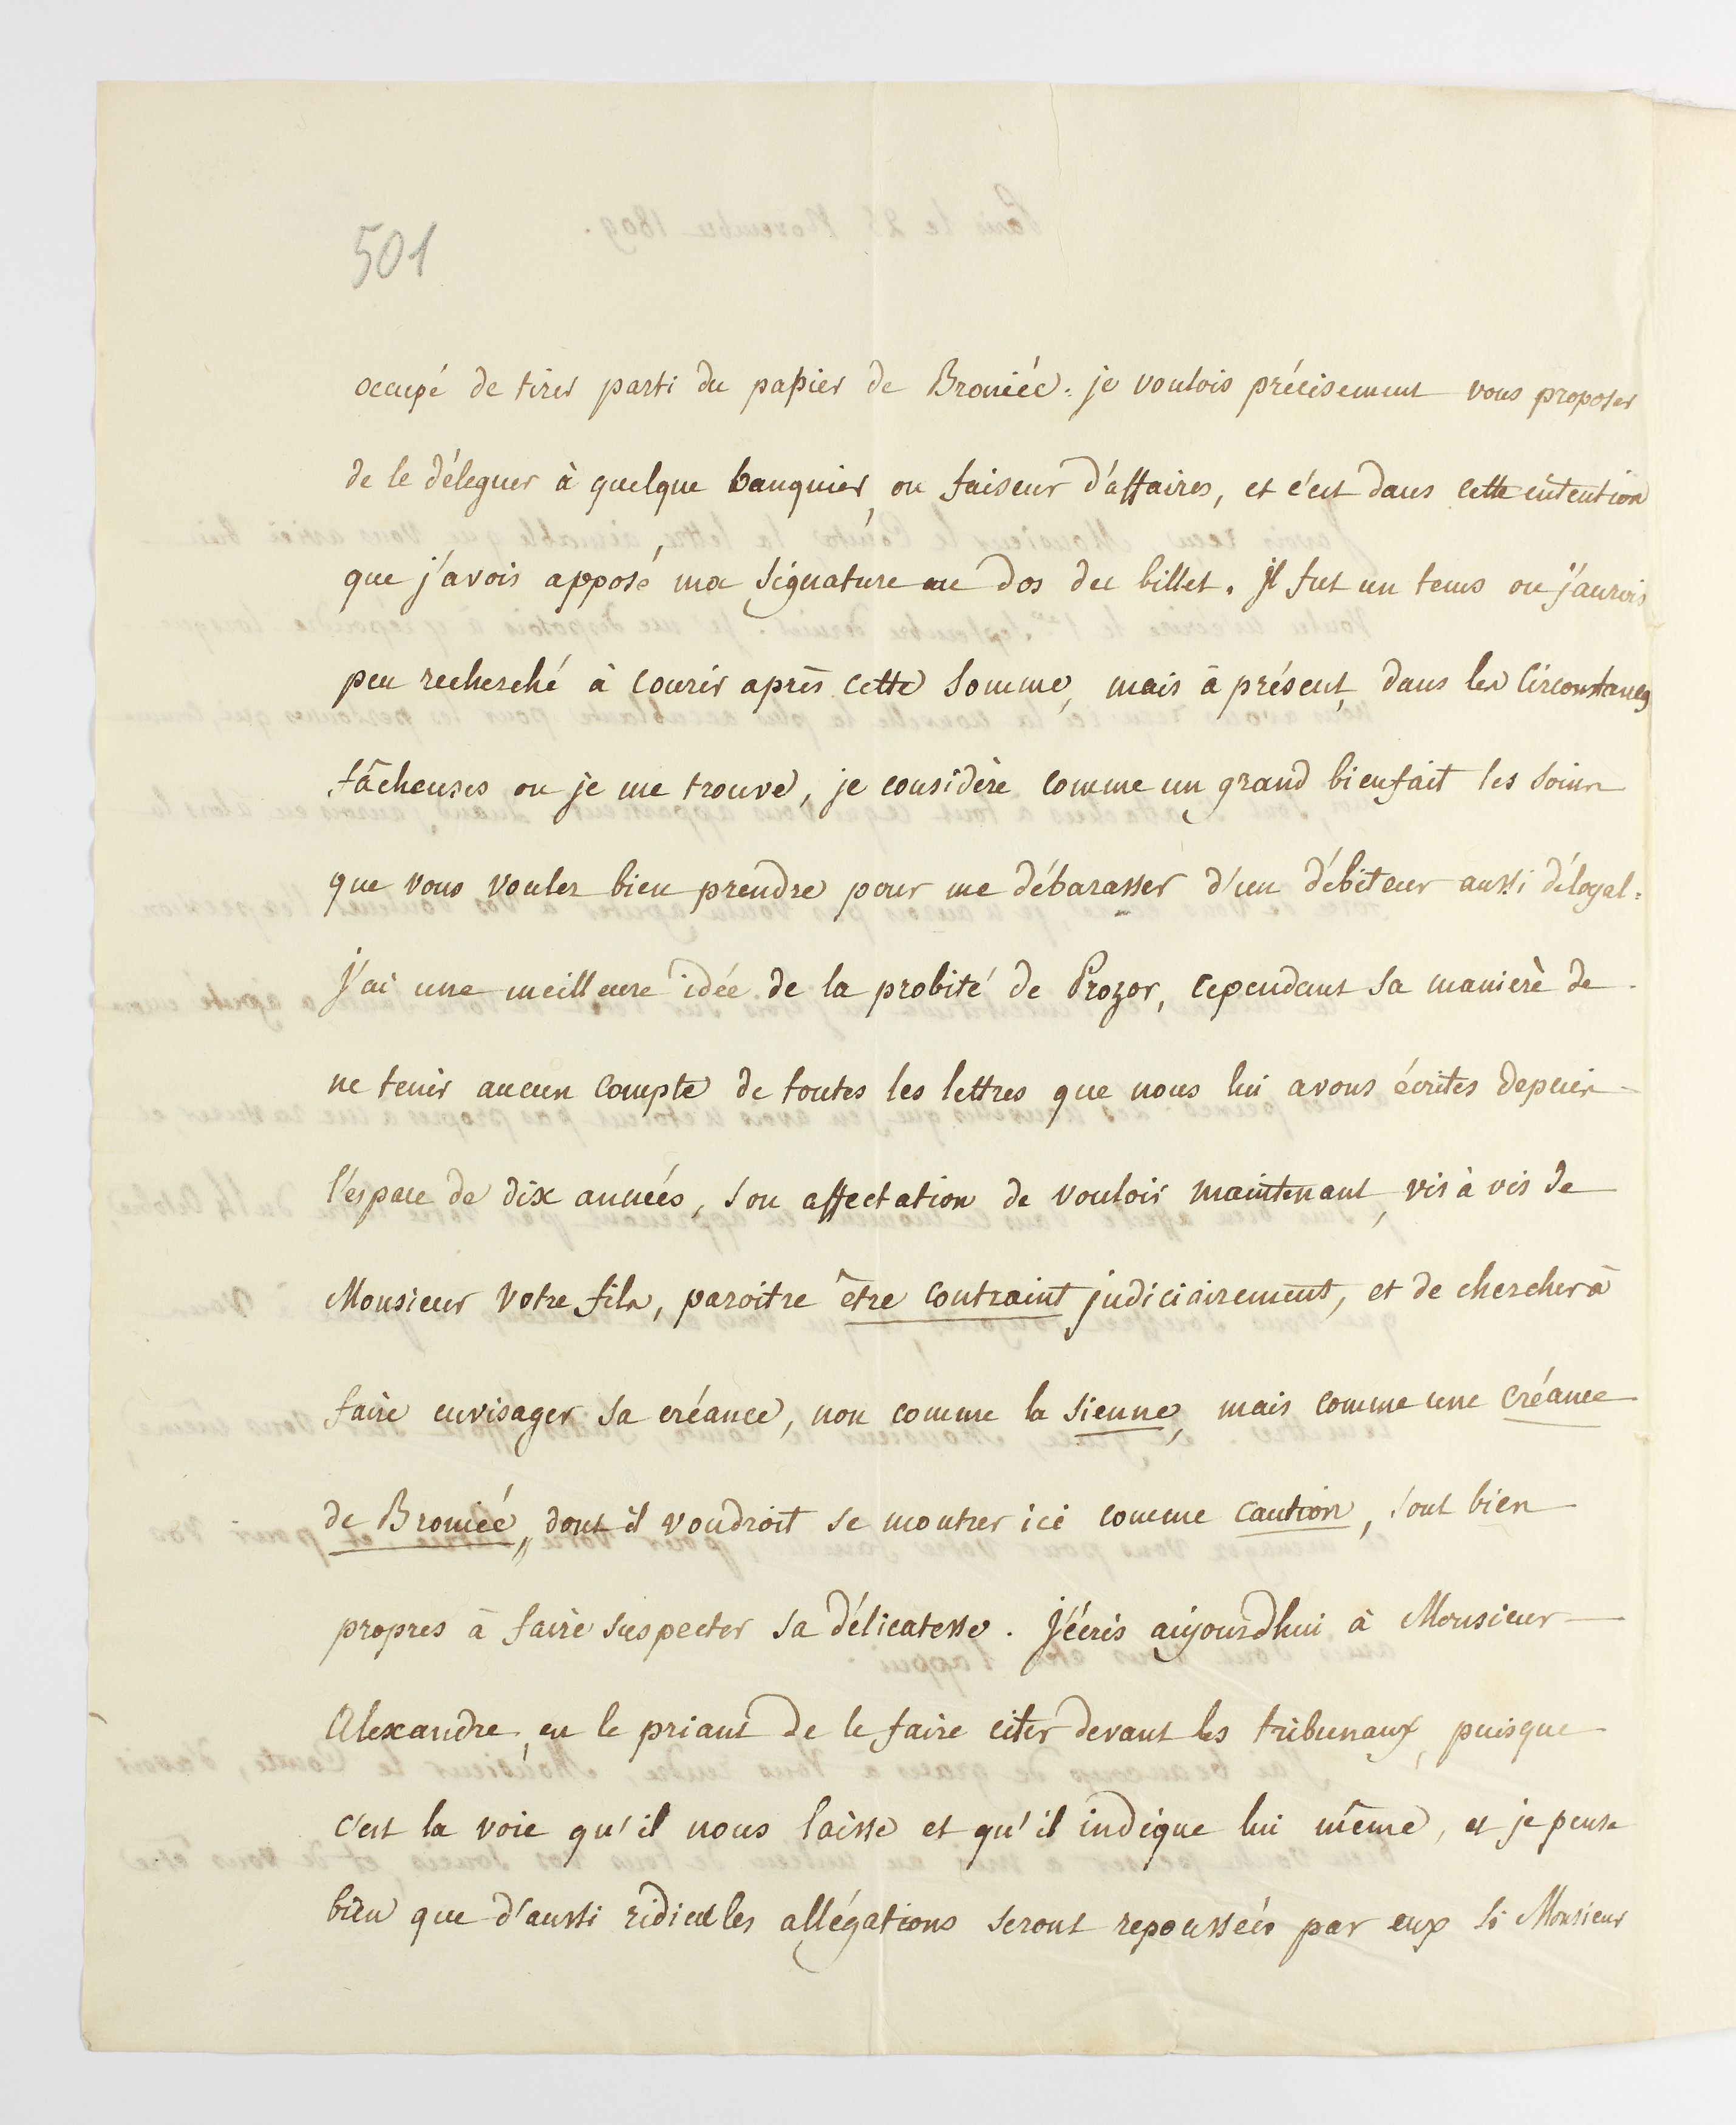 501
occupé de tirer parti du papier de Broniée. je voulois précisement vous proposer
de le déleguer à quelque banquier, ou faiseur d'affaires, et c'est dans cette intention
que j'avois apposé ma signature au dos du billet. Il fut un tems ou j'aurois
peu recherché à courir après cette somme, mais à présent, dans les circonstances
fâcheuses ou je me trouve, je considère comme un grand bienfait les soins
que vous voulez bien prendre pour me débarasser d'un débiteur aussi déloyal.
j'ai une meilleure idée de la probité de Prozor, cependant sa manière de
ne tenir aucun compte de toutes les lettres que nous lui avons écrites depuis
l'espace de dix années, son affectation de vouloir maintenant, vis à vis de
Monsieur votre fils, paroitre être contraint judiciairement, et de chercher à
faire envisager sa créance, non comme la sienne, mais comme une créance
de Broniée, dont il voudroit se montrer ici comme caution, sont bien
propres à faire suspecter sa délicatesse. J'écris aujourdhui à Monsieur
Alexandre, en le priant de le faire citer devant les tribunaux, puisque
c'est la voie qu'il nous laisse et qu'il indique lui même, et je pense
bien que d'aussi ridicules allégations seront repoussées par eux si Monsieur